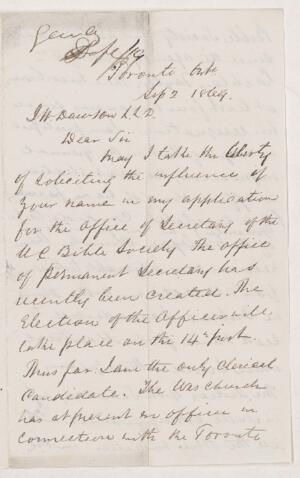 Toronto Ont
Sep 2 1869.
J W Dawson L L D.
Dear Sir
May I take the liberty
of soliciting the influence of
your name in my application
for the office of Secretary of the
U C Bible Society The office
of permanent Secretary has
recently been created. The
Election of the Officer will
take place on the 14th inst.
Thus far I am the only clerical
Candidate. The Wes Church
has at present an officer in
connection with the Toronto